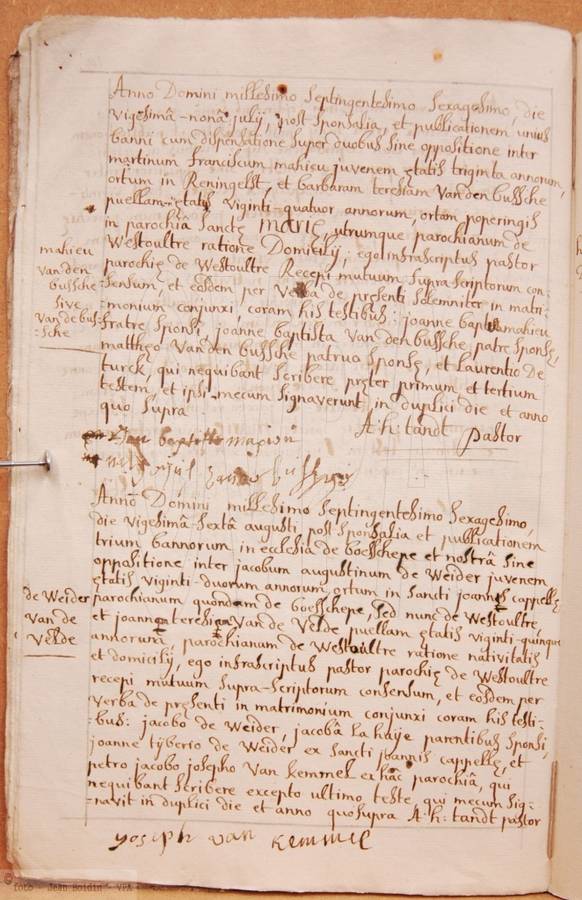 Anno Domini millesimo Septingentesimo Sexagesimo, die
vigesimâ-nonâ julij, post Sponsalia, et publicationem unius
banni cum dispensatione super duobus sine oppositione inter
martinum franciscum mahieu juvenem ętatis triginta annorum,
ortum in Reningelst, et barbaram teresiam Vanden bussche
puellam ętatis viginti-quatuor annorum, ortam poperingis
in parochiâ Sanctę marię, utrumque parochianum de
Westoultre ratione Domicilij, ego infrascriptus pastor
parochię de Westoultre Recepi mutuum suprascriptorum con-
mahieu
vanden
bussche
sive
Vande bus-
:sche
:sensum, et eosdem per Verba de pręsenti solemniter in matri-
:monium conjunxi, coram his testibus: joanne baptista mahieu
fratre sponsi, joanne baptista Van den bussche patre sponsę,
matthęo Van den bussche patruo sponsę, et Laurentio De
turck, qui nequibant scribere pręter primum et tertium
testem, et ipsi mecum signaverunt in duplici die et anno
quo supra
A:h: tandt pastor
Jan baptiste
Anno Domini millesimo Septingentesimo Sexagesimo,
die vigesimâ Sextâ augusti post Sponsalia et publicationem
trium bannorum in ecclesia de boesschepe et nostrâ sine
oppositione inter jacobum augustinum de Weider juvenem
ętatis viginti-duorum annorum, ortum in Sancti joannis cappellę
de Weider
van de
Velde
parochianum quondam de boesschepe, sed nunc de Westoultre,
et joannam teresiam Van de Velde puellam ętatis viginti-quinque
annorum, parochianum de Westoultre ratione nativitatis
et domicilij, ego infrascriptus pastor parochię de Westoultre
recepi mutuum supra-scriptorum consensum, et eosdem per
verba de pręsenti in matrimonium conjunxi coram his testi-
:bus: jacobo de Weider, jacobâ la haije parentibus sponsi,
joanne tijberio de Weider ex Sancti joannis cappellę, et
petro jacobo josepho Van kemmel ex hâc parochiâ, qui
nequibant scribere excepto ultimo teste, qui mecum sig-
:navit in duplici die et anno quo supra A:h: tandt pastor
yoseph van kemmel
© foto - Jean Boidin - VFA